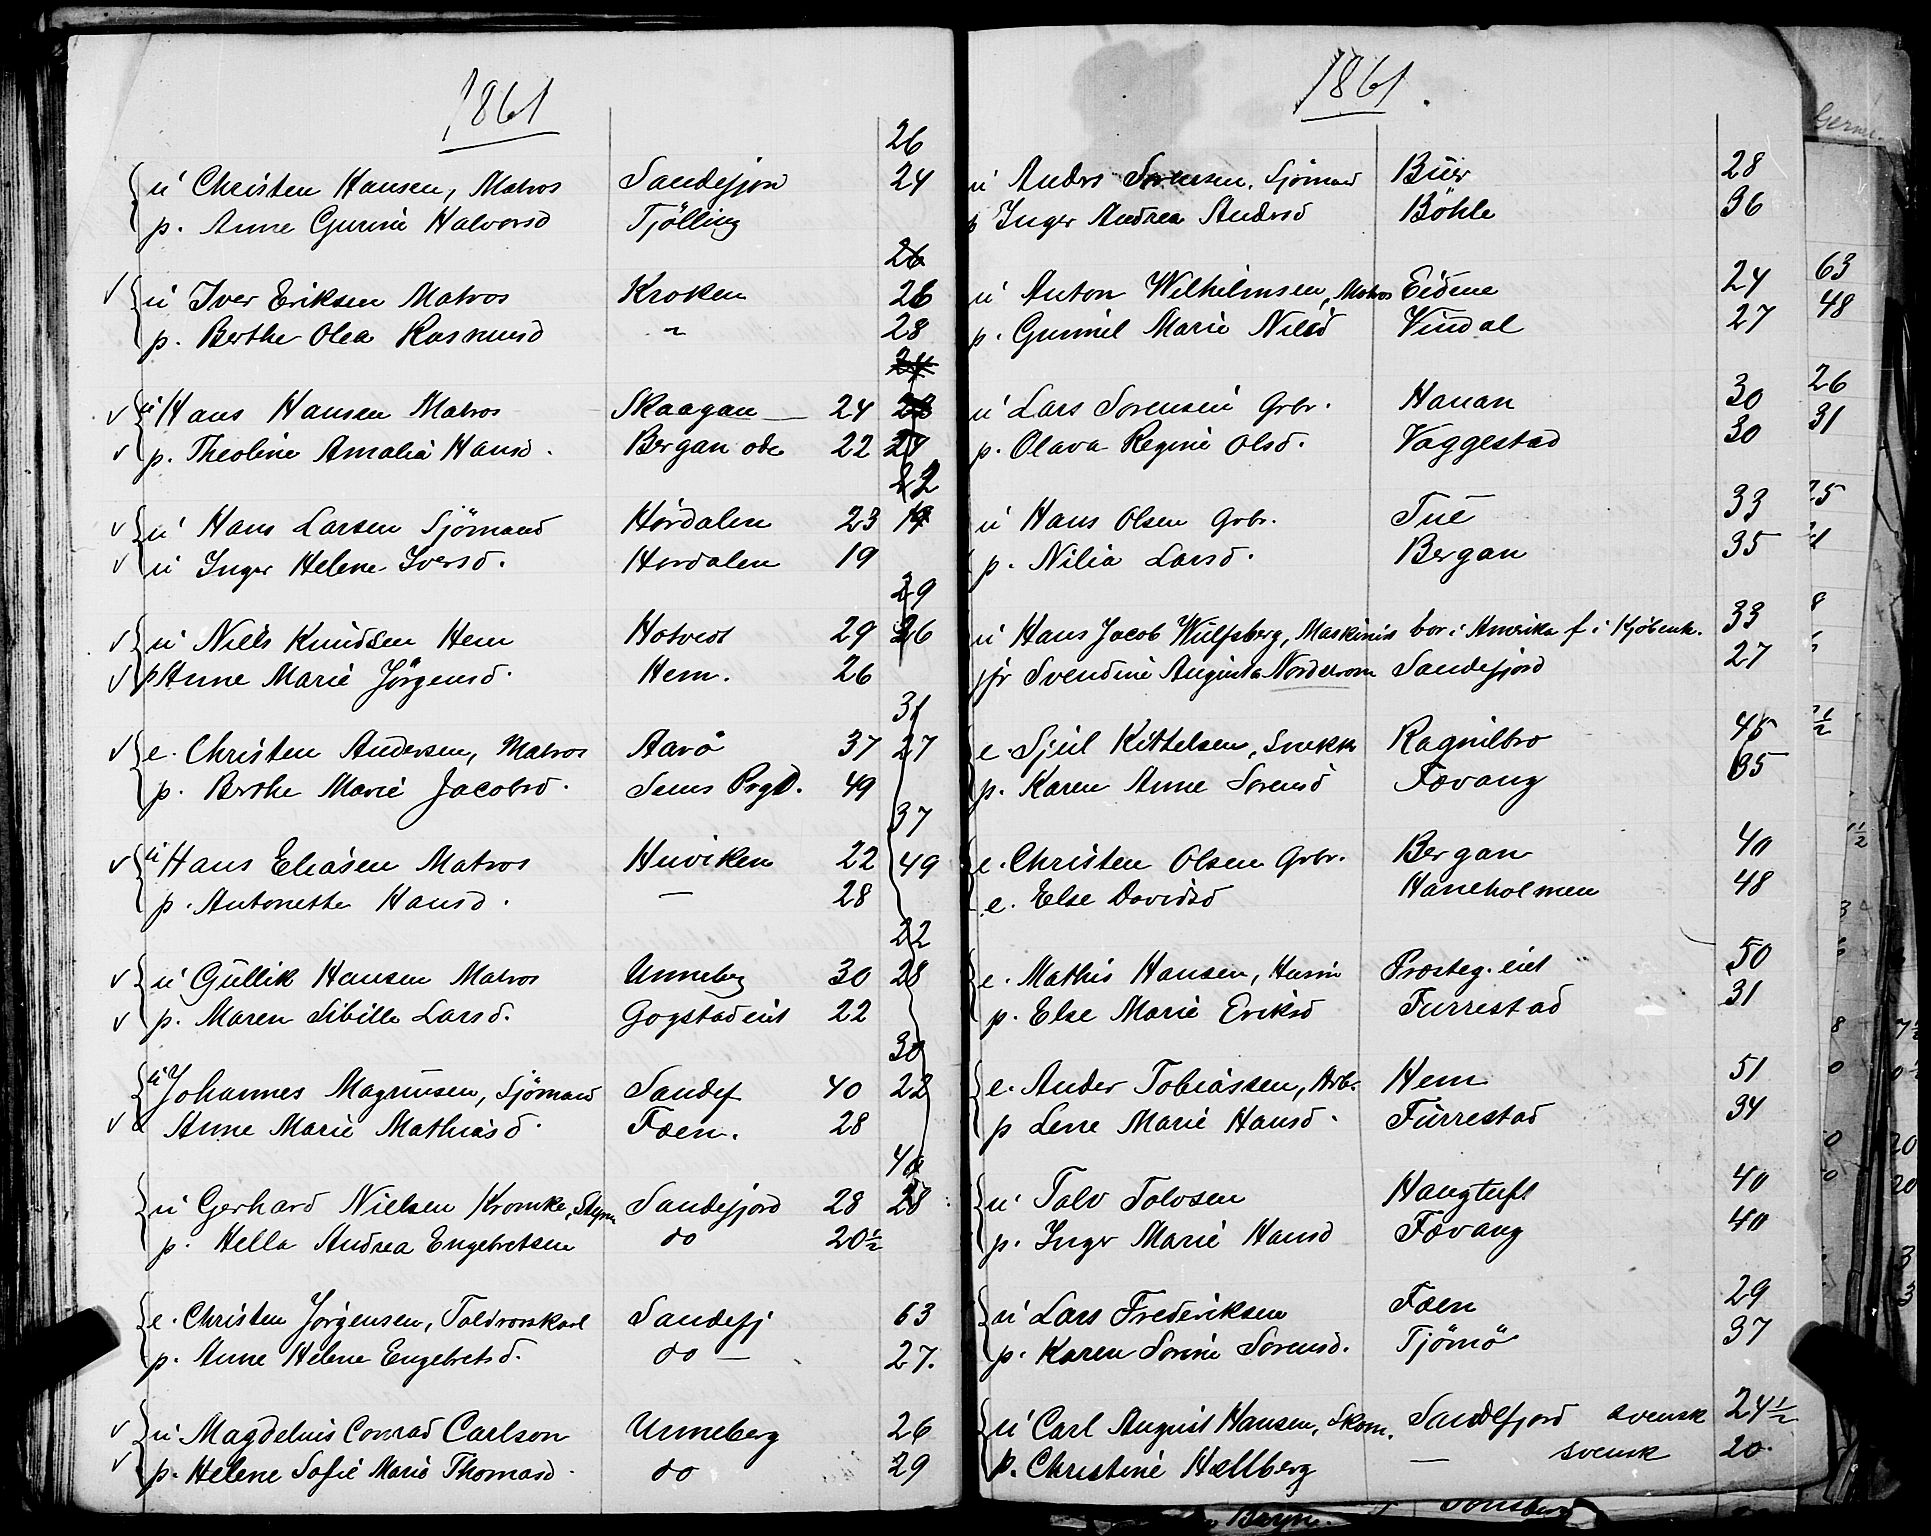 1861
26
u Christen Hansen, Matros Sandefjord 24
p. Anne Gurine Halvorsd Tjölling
26
u Iver Eriksen Matros Kroken 26
p. Berthe Olea Rasmusd " 28
24
u Hans Hansen Matros Skaagan — 24 28
p. Theoline Amalia Hansd. Bergan ode 22 24
22
u Hans Larsen Sjömand Hördalen 23 19
u Inger Helene Iversd. Hordalen 19
29
u Niels Knudsen Hem Hotvedt 29 26
p Anne Marie Jörgensd. Hem. 26
31
e. Christen Andersen, Matros Aarö 37 27
p. Berthe Marie Jacobsd. Sems Prgd. 49
37
u Hans Eliasen Matros Huviken 22 49
p. Antonette Hansd. — 28
22
u Gullik Hansen Matros Unneberg 30 28
p. Maren Sibille Larsd. Gogstadeiet 22
30
u Johannes Magnusen, Sjömand Sandef 40 22
Anne Marie Mathiasd. Foen. 28
40
u Gerhard Nielsen Kromke, Styrm Sandefjord 28 28
p. Hella Andrea Engebretsen do 20½
e. Christen Jörgensen, Toldrorskarl Sandefj 63
p. Anne Helene Engebretsd. do — 27.
u Magdelius Conrad Carlson Unneberg 26
p. Helene Sofie Marie Thomasd. do 29
1861.
u Anders Sorensen, Sjömand Buer 28
p Inger Andrea Andersd Böhle 36
u Anton Wilhelmsen, Matros Eidene 24
p. Gunnil Marie Nilsd Vindal 27
u Lars Sorensen Grbr. Hanan 30
p. Olava Regine Olsd. Vaggestad 30
u Hans Olsen Grbr. Tue 33
p. Nilia Larsd. Bergan 35
u Hans Jacob Wulfsberg, Maskinist bor i Amerika f i Kjöbenh. 33
jfr Svendine Augusta Nordstrom Sandefjord 27
e. Sjul Kittelsen, Snekk Ragnilbro 45
p. Karen Anne Sorensd Fovang 35
e. Christen Olsen Grbr. Bergan 40
e. Else Davidsd Haneholmen 48
e. Mathis Hansen, Husm Prosteg. eiet 50
p. Else Marie Eriksd Furrestad 31
e. Ander Tobiassen, Arb. Hem 51
p Lene Marie Hansd. Furrestad 34
u Tolv Tolvsen Haugtuft 40
p. Inger Marie Hansd Fovang 40
u Lars Frederiksen Foen 29
p. Karen Sorine Sorensd. Tjömö 37
u Carl August Hansen, Skom. Sandefjord svensk 24½
p. Christine Hællberg — svensk 20.
63
48
26
31